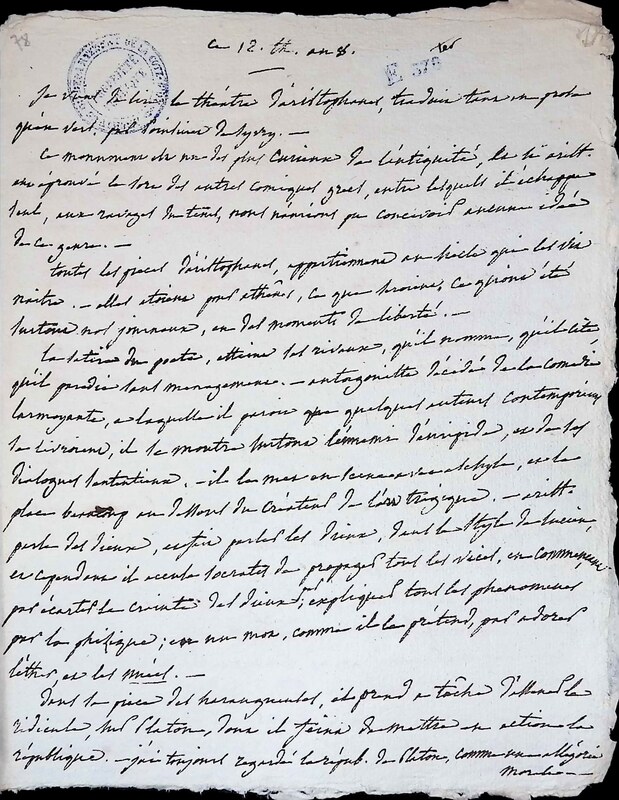 78
ce 12. th. an 8.
E 378
Je viens de lire le théâtre d'aristophanes, traduit tant en prose
qu'en vers, par Poinsinet de Sivry. —
Ce monument est un des plus curieux de l'antiquité, et si arist.
eut éprouvé le sort des autres comiques grecs, entre lesquels il échappe
seul, aux ravages du tems, nous n'aurions pu concevoir aucune idée
de ce genre. —
toutes les pieces d'aristophanes, appartiennent au siecle qui les vit
naitre. — elles etoient pour athènes, ce que
surtout nos journaux, en des moments de liberté. —
la satire du poete, atteint ses rivaux, qu'il nomme, qu'il cite,
qu'il parodie sans management. — antagoniste décidé de la comedie
larmoyante, a laquelle il paroit que quelques auteurs contemporains
se livroient, il se montre surtout l'ennemi d'euripide, et de ses
dialogues sententieux. — il le met en scene avec eschyle, et le
place beaucoup au dessous du créateur de l'art tragique. — arist.
parle des dieux, et fait parler les dieux, dans le style de lucien,
et cependant il accuse socrates de propager tous les vices, en commençant
par écarter la crainte des dieux; expliquer tous les phenomenes
par la phisique; en un mot, comme il le prétend, par adorer
l'éther, et les nuées. —
dans la piece des harangueuses, il prend a tâche d'
ridicule, sur Platon, dont il feint de mettre en action la
république. — j'ai toujours regardé la répub. de Platon, comme une allégorie
morale —